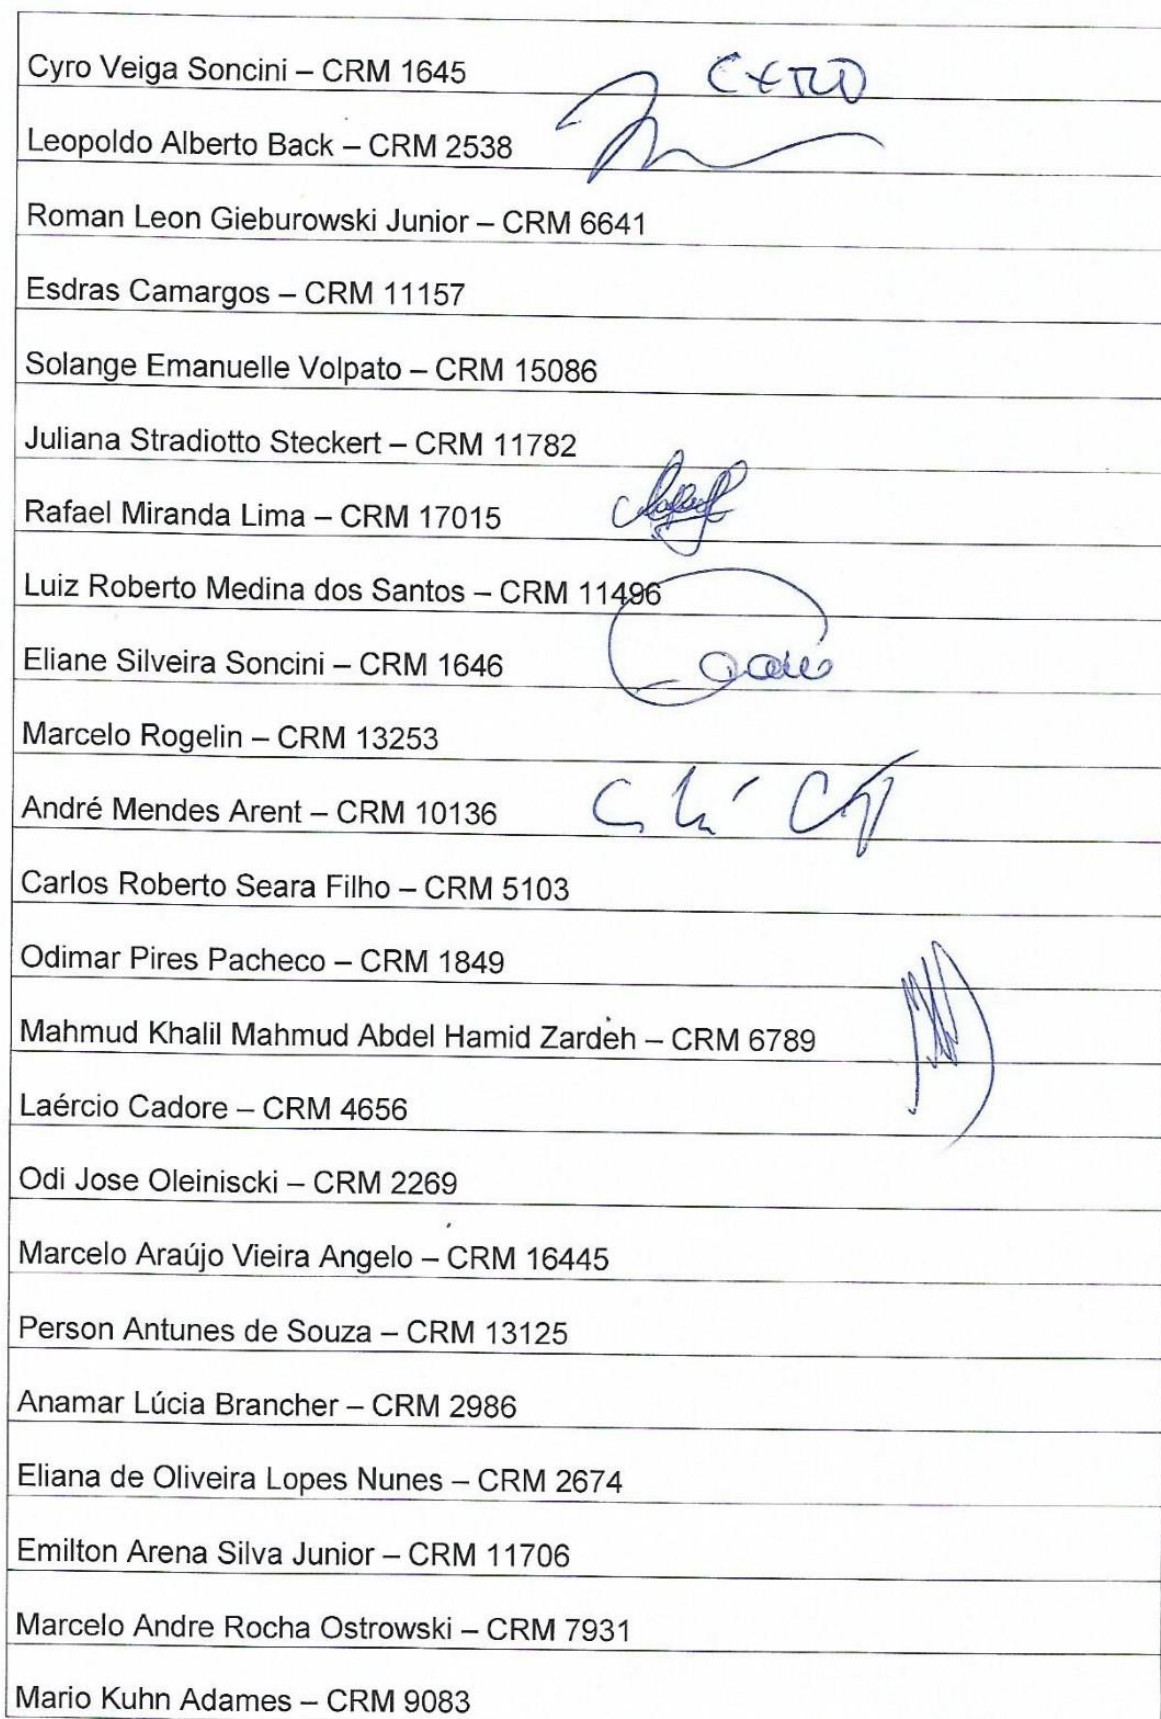 Cyro Veiga Soncini – CRM 1645
Leopoldo Alberto Back – CRM 2538
Roman Leon Gieburowski Junior – CRM 6641
Esdras Camargos – CRM 11157
Solange Emanuelle Volpato – CRM 15086
Juliana Stradiotto Steckert – CRM 11782
Rafael Miranda Lima – CRM 17015
Luiz Roberto Medina dos Santos – CRM 11496
Eliane Silveira Soncini – CRM 1646
Marcelo Rogelin – CRM 13253
André Mendes Arent – CRM 10136
Carlos Roberto Seara Filho – CRM 5103
Odimar Pires Pacheco – CRM 1849
Mahmud Khalil Mahmud Abdel Hamid Zardeh – CRM 6789
Laércio Cadore – CRM 4656
Odi Jose Oleiniscki – CRM 2269
Marcelo Araújo Vieira Angelo – CRM 16445
Person Antunes de Souza – CRM 13125
Anamar Lúcia Brancher – CRM 2986
Eliana de Oliveira Lopes Nunes – CRM 2674
Emilton Arena Silva Junior – CRM 11706
Marcelo Andre Rocha Ostrowski – CRM 7931
Mario Kuhn Adames – CRM 9083